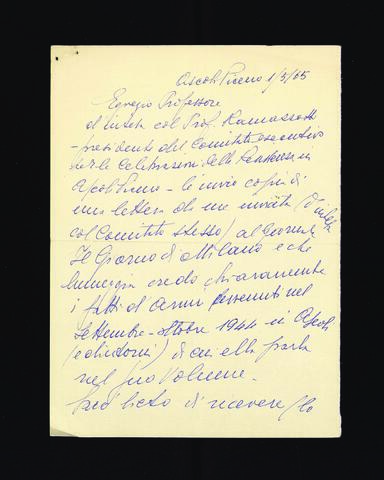 Ascoli Piceno 1/5/65
Egregio Professore
d'intesa col Prof. Ramassotti
- presidente del Comitato esecutivo
per le Celebrazioni della Resistenza in
Ascoli Piceno - le invio copia di
una lettera da me inviata (d'intesa
col Comitato stesso) al Giornale
Il Giorno di Milano e che
lumeggia credo chiaramente
i fatti d'armi avvenuti nel
settembre - ottobre 1944 in Ascoli
(e dintorni) di cui ella parla
nel suo volume -
Sarò lieto di ricevere